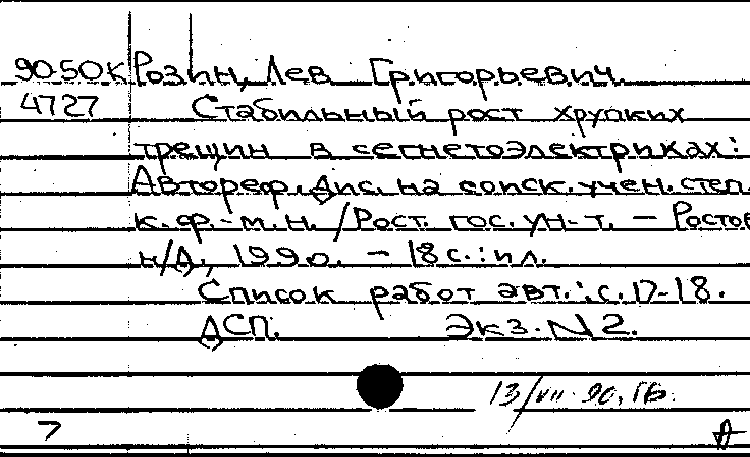 9050К Розин, Лев Григорьевич.
4727 Стабильный рост хрупких
трещин в сегнетоэлектриках:
Автореф. дис. на соиск. учен. степ.
к. ф.-м. н. / Рост. гос. ун-т. - Ростов
н/Д, 1990. - 18 с.: ил.
Список работ авт.: с. 17-18.
ДСП. Экз. N 2.
13/VII-90, ГБ.
7